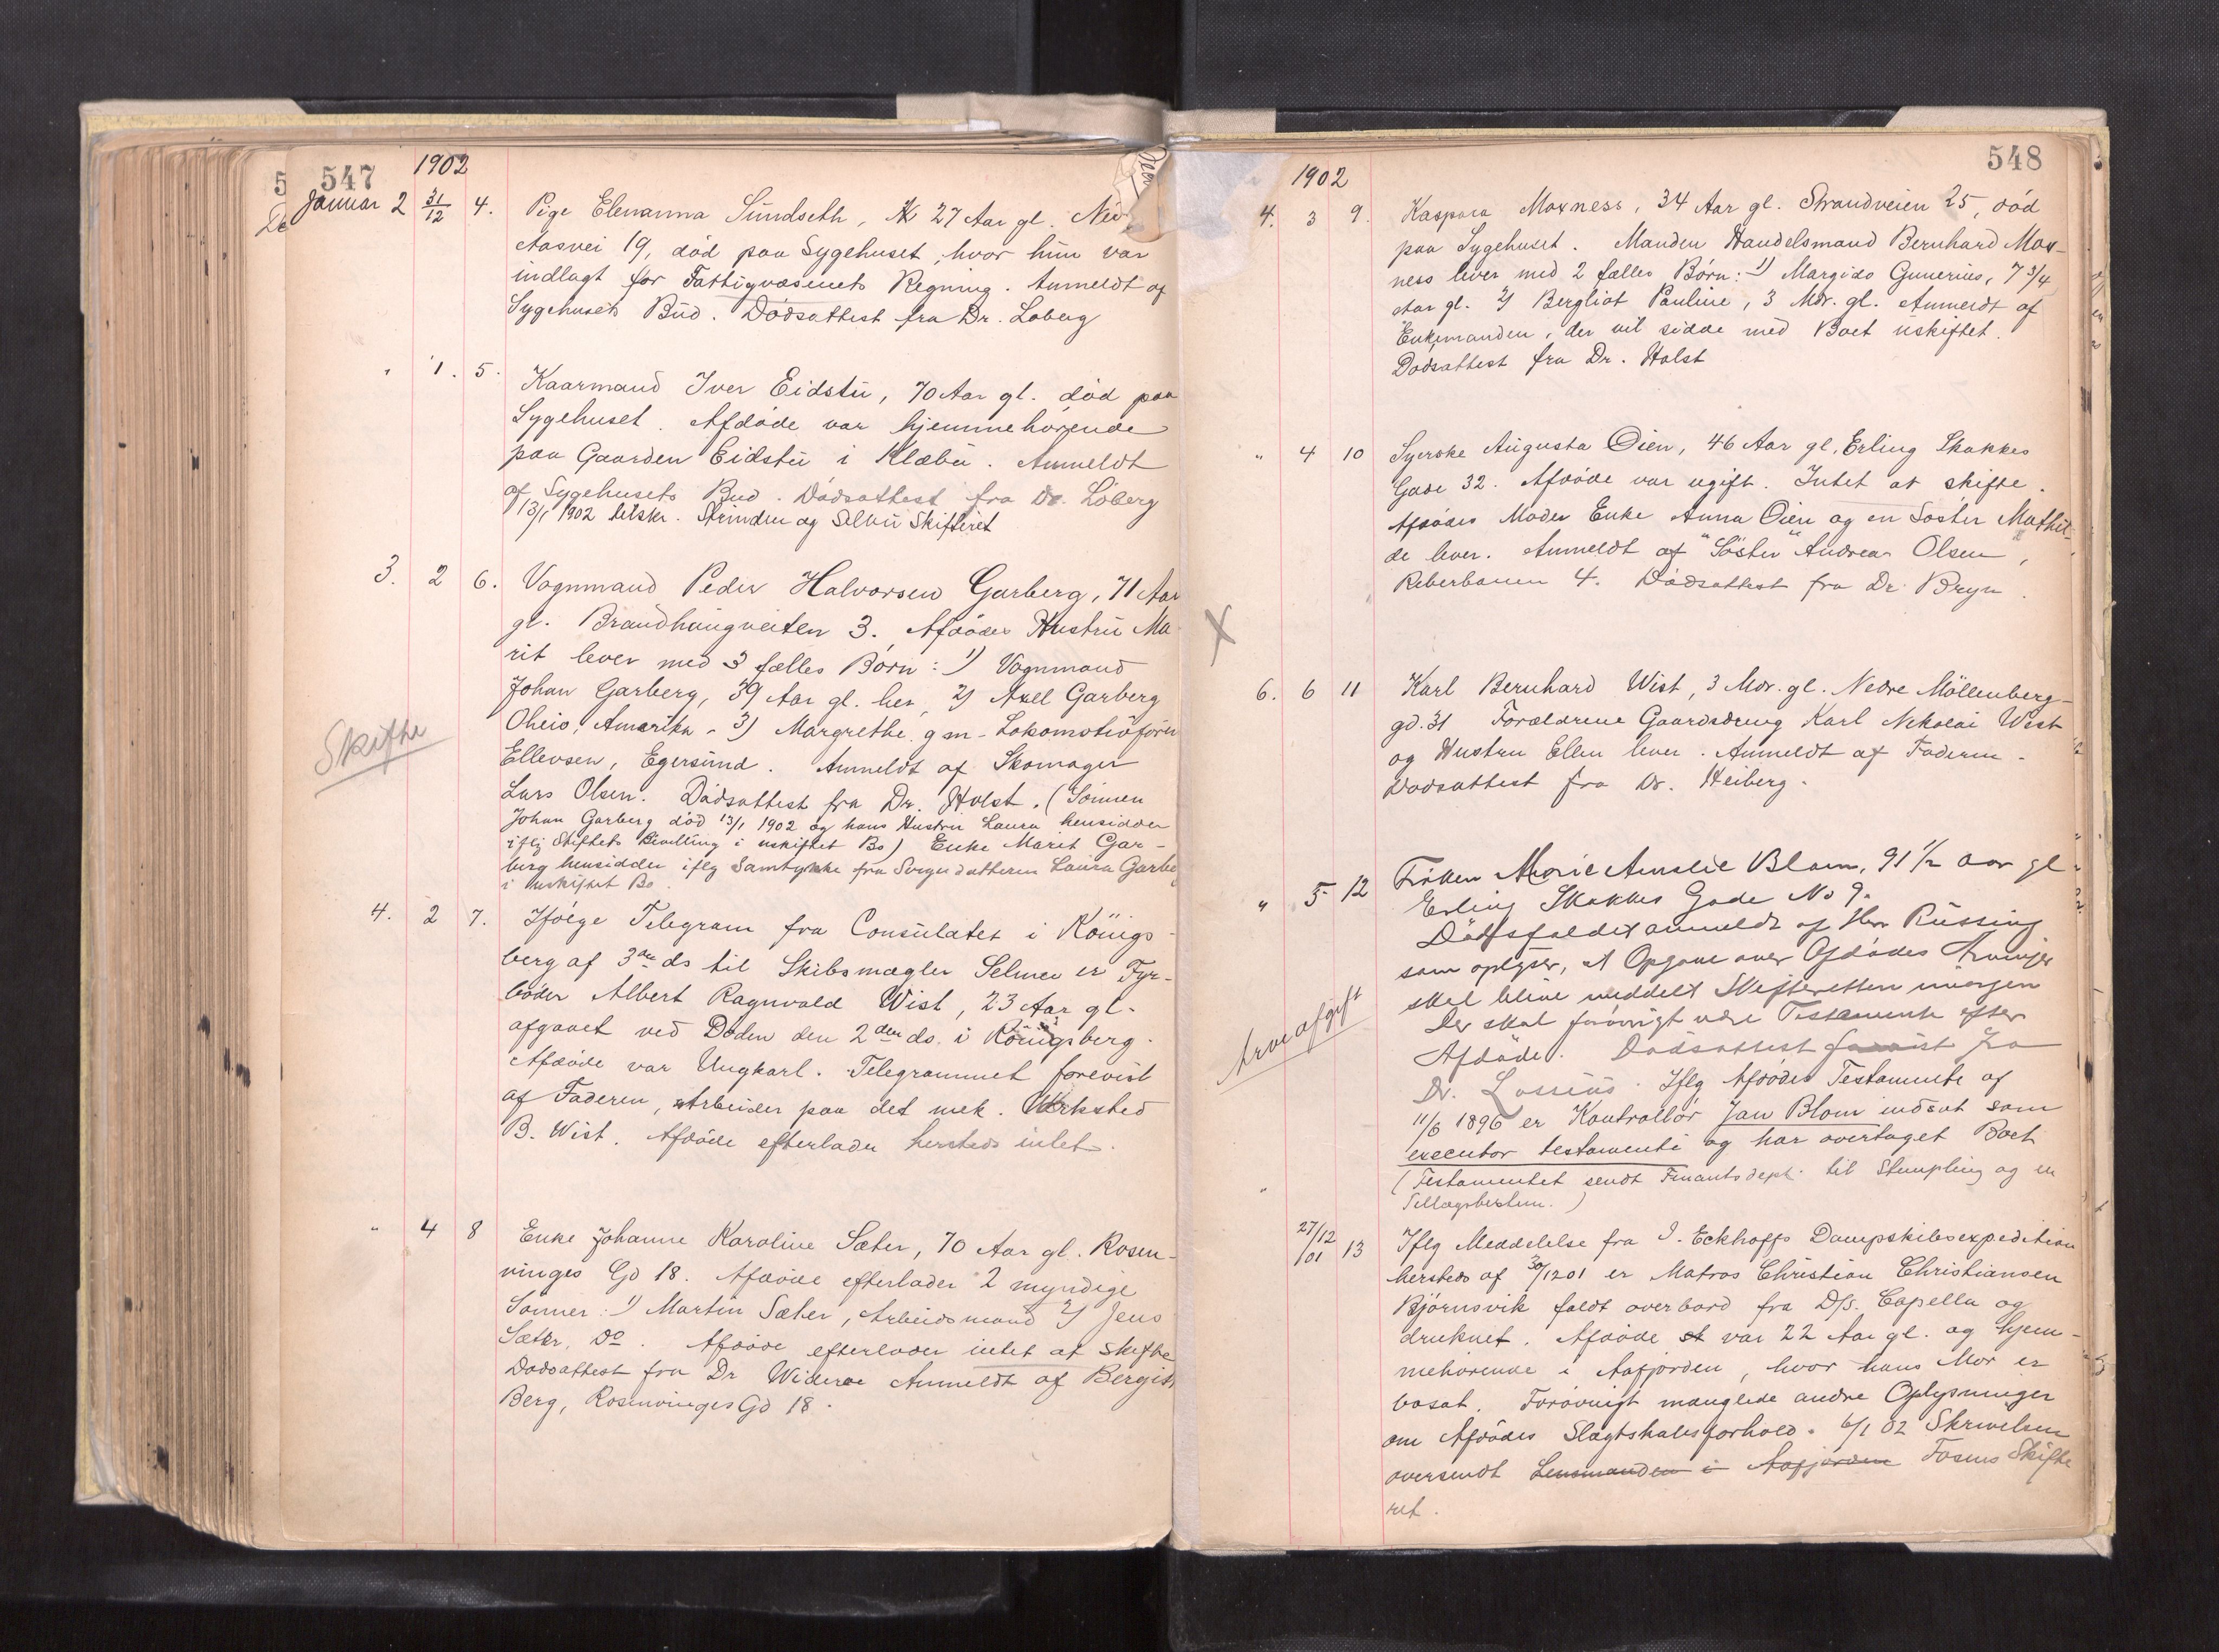 547
1902
Januar 2 31/12 4. Pige Elenanna Sundseth, 27 Aar gl.
Aasvei 19, död paa Sygehuset, hvor hun var
indlagt for Fattigvæsenets Regning. Anmeldt af
Sygehusets Bud. Dödsattest fra Dr. Loberg
" 1. 5. Kaarmand Iver Eidstu, 70 Aar gl. död paa
Sygehuset. Afdöde var hjemmehörende
paa Gaarden Eidstu i Klæbu. Anmeldt
af Sygehusets Bud. Dödsattest fra Dr. Löberg
13/1 1902 tilskr. Strinden og Selbu Skifteret
3. 2 6. Vognmand Peder Halvorsen Garberg, 71 Aar
gl. Brandhaugveiten 3. Afdödes Hustru Ma-
rit lever med 3 fælles Börn: 1) Vognmand
Johan Garberg, 39 Aar gl. her, 2) Axel Garberg
Oheio, Amerika - 3) Margrethe g m - Lokomotivförer
Skifte
Ellevsen, Egersund. Anmeldt af Skomager
Lars Olsen. Dödsattest fra Dr. Holst. (Sönnen
Johan Garberg död 13/1 1902 og hans Hustru Laura hensidder
iflg Skiftets Bevilling i uskiftet Bo) Enke Marit Gar-
berg hensidder iflg Samtykke fra Svigerdatteren Laura Garberg
i uskiftet Bo
4. 2 7. Ifölge Telegram fra Consulatet i Königs-
berg af 3die ds til Skibsmægler Selmer er Fyr-
böder Albert Ragnvald Wist, 23 Aar gl.
afgaaet ved Döden den 2den ds. i Königsberg.
Afdöde var Ungkarl. Telegrammet forevist
af Faderen, Arbeider paa det mek. Værksted
B. Wist. Afdöde efterlader hersteds intet.
" 4 8 Enke Johanne Karoline Sæter, 70 Aar gl. Rosen-
vinges Gd 18. Afdöde efterlader 2 myndige
Sönner: 1) Martin Sæter, Arbeidsmand 2) Jens
Sæter, Do. Afdöde efterlader intet at skifte
Dödsattest fra Dr Wideröe Anmeldt af Bergit
Berg, Rosenvinges Gd 18.
548
1902
4. 3 9. Kaspara Moxness, 34 Aar gl. Strandveien 25, död
paa Sygehuset. Manden Handelsmand Bernhard Mox-
ness lever med 2 fælles Börn: 1) Margido Gunerius, 7 3/4
Aar gl. 2) Bergliot Pauline, 3 Mdr. gl. Anmeldt af
Enkemanden, der vil sidde med Boet uskiftet.
Dödsattest fra Dr. Holst
" 4 10 Syerske Augusta Öien, 46 Aar gl, Erling Skakkes
Gade 32. Afdöde var ugift. Intet at skifte.
Afdödes Moder Enke Anna Öien og en Söster Mathil-
de lever. Anmeldt af "Söster" Andrea Olsen,
Reberbanen 4. Dödsattest fra Dr. Bryn.
X
6. 6 11 Karl Bernhard Wist, 3 Mdr. gl. Nedre Möllenberg-
gd. 31 Forældrene Gaardsdreng Karl Nikolai Wist
og Hustru Ellen lever. Anmeldt af Faderen.
Dödsattest fra Dr. Heiberg.
" 5 12 Fröken Marie Amalie Blom, 91 1/2 Aar gl
Erling Skakkes Gade No 9.
Dödsfaldet anmeldt af Herr Rüssing
som oplyser, at Opgave over Afdödes Arvinger
skal blive meddelt Skifteretten imorgen
Der skal forövrigt være Testamente efter
Arveafgift
Afdöde. Dödsattest forevist fra
Dr. Lossius. Iflg Afdödes Testamente af
11/6 1896 er Kontrollör Jan Blom indsat som
executor testamenti og har overtaget Boet
(Testamentet sendt Finantsdept. til Stempling og en
Tillægsbestem.)
27/12/01 13 Iflg Meddelelse fra I. Eckhoffs Dampskibsexpedition
hersteds af 30/12 01 er Matros Christian Christiansen
Björnsvik faldt overbord fra D/S. Capella og
druknet. Afdöde var 22 Aar gl. og hjem-
mehörende i Aafjorden, hvor hans Mor er
bosat. Forövrigt manglede andre Oplysninger
om Afdödes Slægtskabsforhold. 6/1 02 Skrivelsen
oversendt Lensmanden i Aafjorden Fosens Skifte
ret.